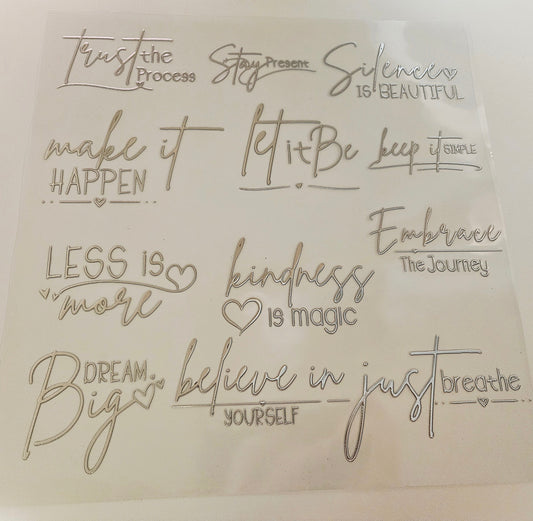 Trust the
Process
Stay Present
Silence
IS BEAUTIFUL
make it
HAPPEN
let it Be
keep it SIMPLE
Embrace
The Journey
LESS is
more
kindness
is magic
DREAM
Big
believe in
YOURSELF
just breathe